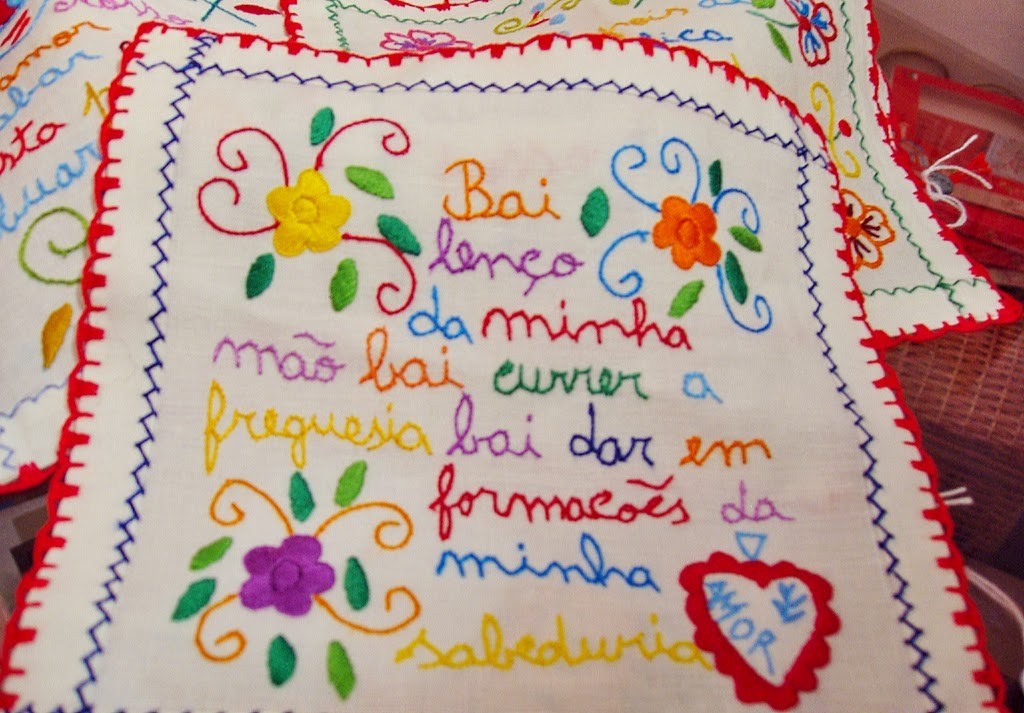 amor
bar
sta
Bai
lenço
da minha
mão bai currer a
freguesia bai dar em
formacões da
minha
sabeduria
AMOR